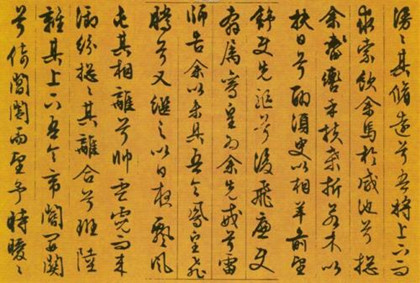 漫漫其脩遠兮吾將上下而
求索飲余馬於咸池兮揔
余轡乎扶桑折若木以
拂日兮聊須臾以相羊前望
舒使先驅兮後飛廉使
奔屬鸞皇為余先戒兮雷
師告余以未具吾令鳳皇飛
騰兮又繼之以日夜飄風
屯其相離兮帥雲霓而來
御紛揔揔其離合兮班陸
離其上下吾令帝閽開關
兮倚閶闔而望予時曖曖